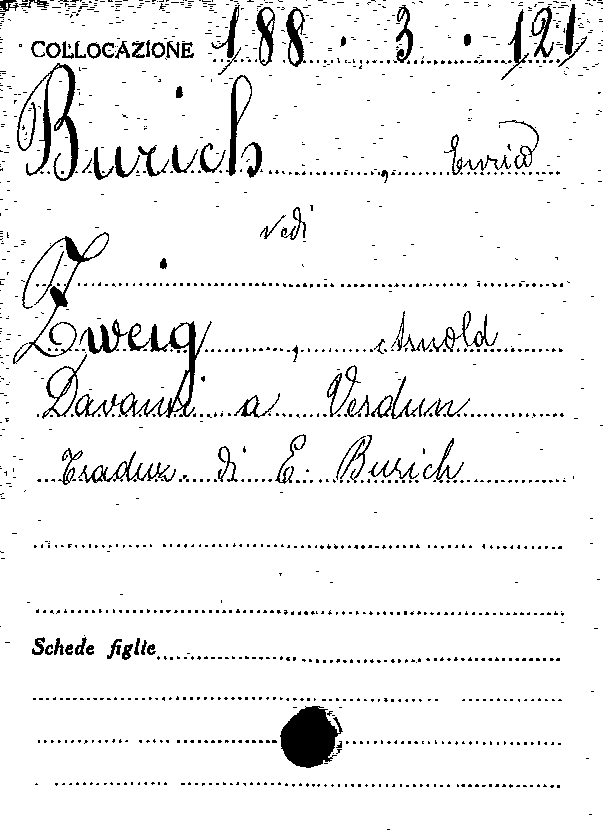 COLLOCAZIONE 188 . 3 . 121
Burich , Enrico
vedi
Zweig , Arnold
Davanti a Verdun
Traduz. di E. Burich
Schede figlie